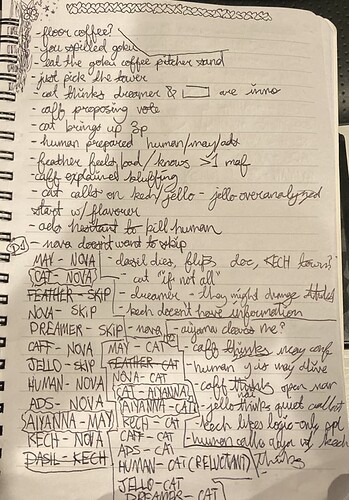 - floor coffee?
- you spilled goku
- eat the goku coffee pitcher sand
- just pick the tower
- cat thinks dreamer & are inno
- caff proposing vote
- cat brings up 3p
- human prepared human/may/ads
- feather feels bad/knows >1 maf
- caff explains bluffing
- cat calls on kech/jello - jello overanalyzed
start w/ flavour
- ads hesitant to kill human
D1 - nova doesn't want to skip
MAY - NOVA - dasil dies, flips doc, KECH town?
CAT - NOVA - cat "if not all"
FEATHER - SKIP - dreamer - they might change
NOVA - SKIP - kech doesn't have information
DREAMER - SKIP - nova - aiyanna clears me?
CAFF - NOVA MAY - CAT - caff thinks may conf
JELLO - SKIP FEATHER - CAT - human y is may alive
HUMAN - NOVA NOVA - CAT - caff thinks open
ADS - NOVA CAT - AIYANNA - jello thinks quiet
AIYANNA - MAY AIYANNA - CAT - kech likes logic-only ppl
KECH - NOVA KECH - CAT - human calls kech
DASIL - KECH CAFF - CAT thinks
ADS - CAT
HUMAN - CAT (RELUCTANT)
JELLO - CAT
DREAMER - CAT